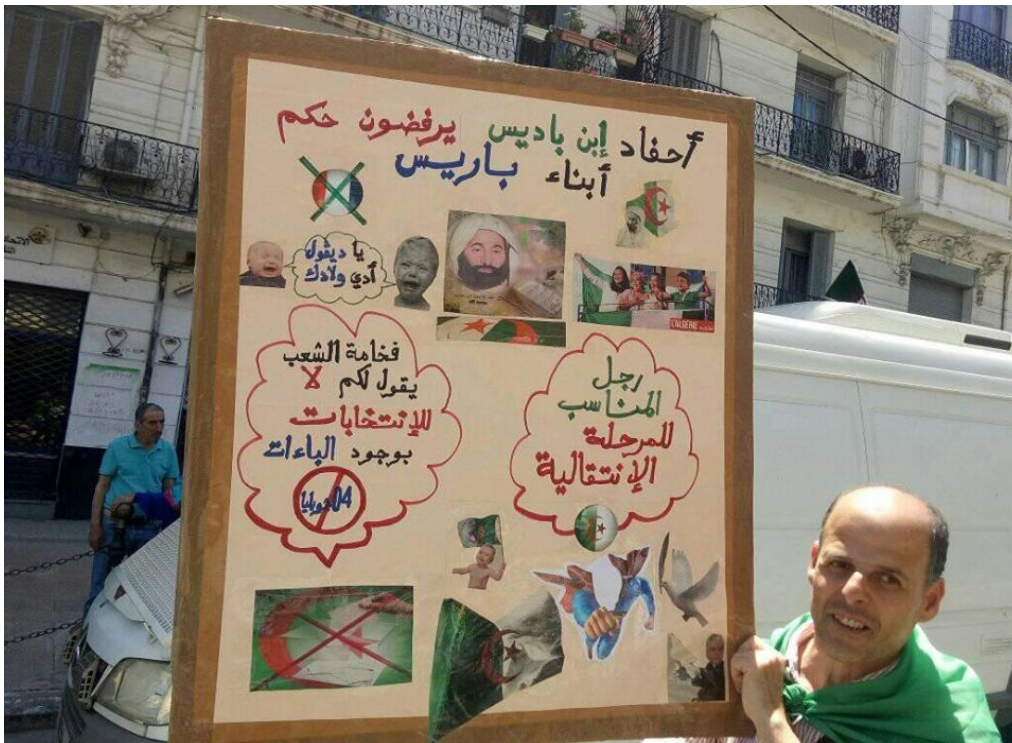 أحفاد إبن باديس يرفضون حكم
أبناء باريس
يا ديڤول
أدي ولادك
L'ALGÉRIE
فخامة الشعب
يقول لكم لا
للإنتخابات
بوجود الباءات
04 جويليا
رجل
المناسب
للمرحلة
الإنتقالية